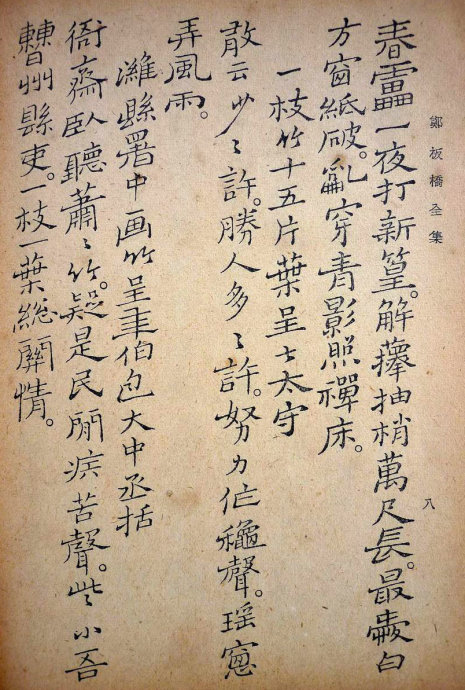 鄭板橋全集
八
春靁一夜打新篁。解籜抽梢萬尺長。最愛白
方窗紙破。亂穿青影照禪床。
一枝竹十五片葉呈七太守
敢云少〻許。勝人多〻許。努力作龝聲。瑶窻
弄風雨。
濰縣署中画竹呈年伯包大中丞括
衙齋臥聽蕭〻竹。疑是民間疾苦聲。些小吾
曹州縣吏。一枝一葉總關情。